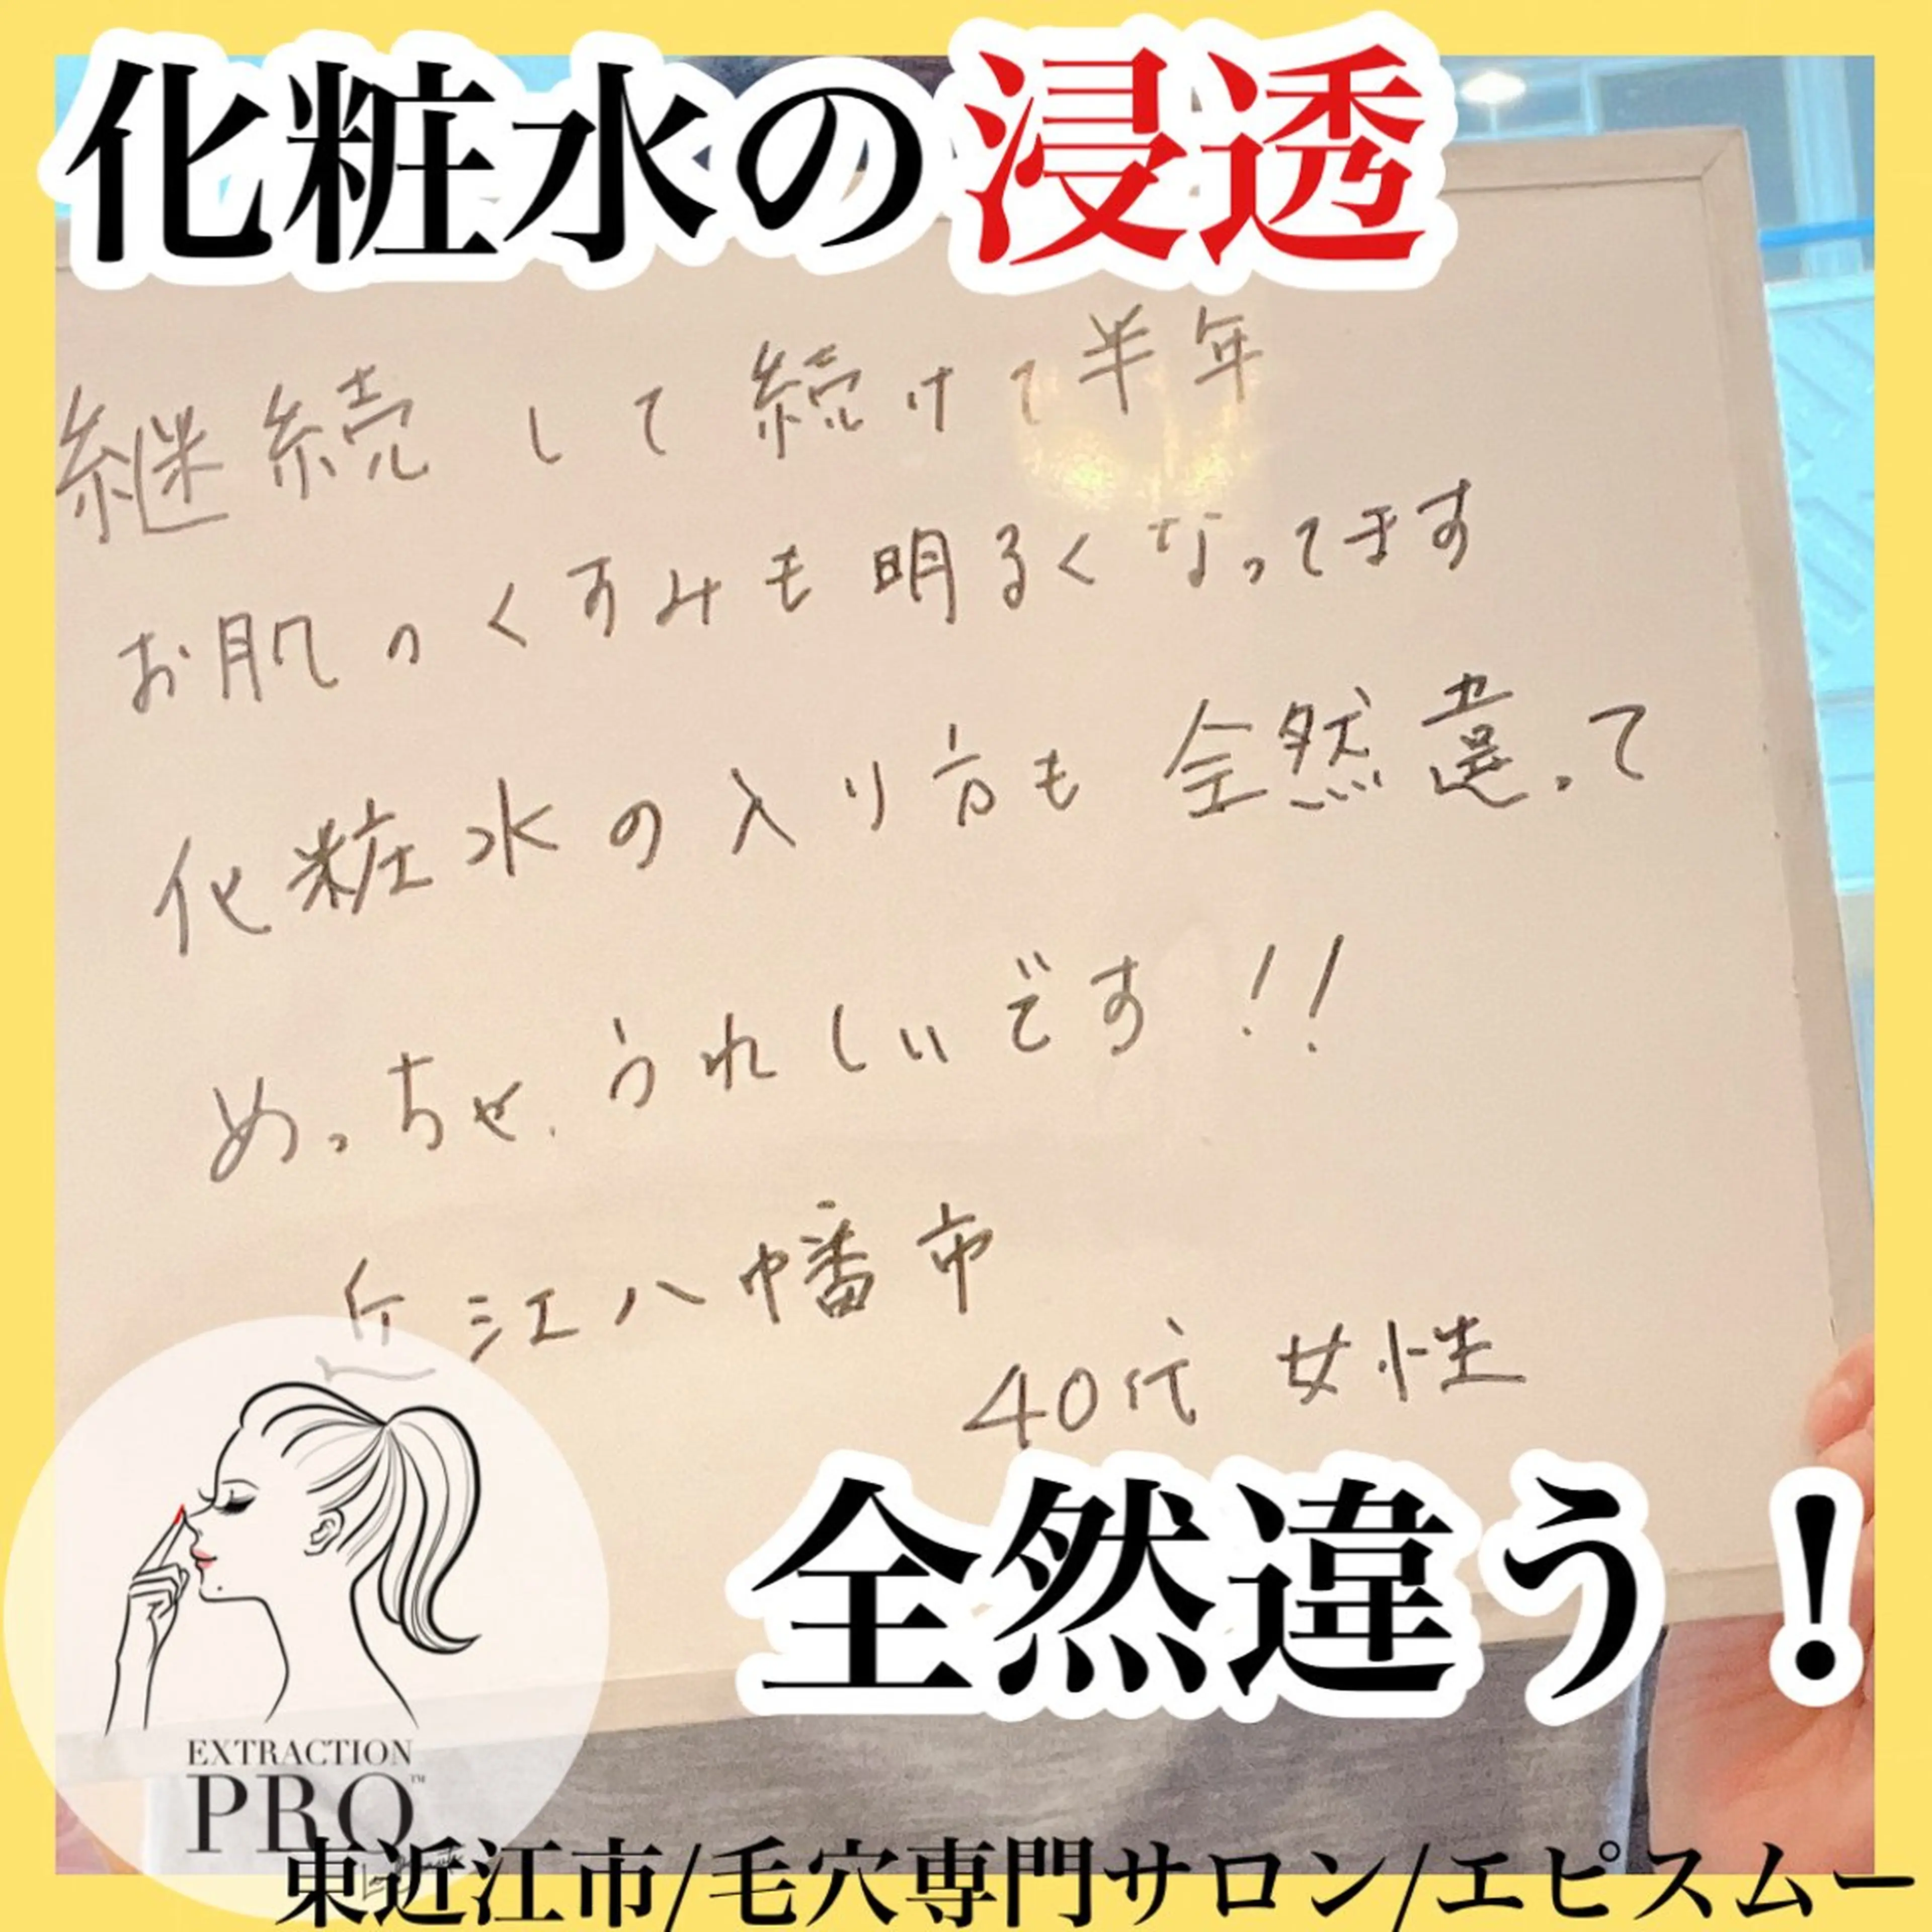 化粧水の浸透
継続して続けて半年
お肌のくすみも明るくなってます
化粧水の入り方も全然違って
めっちゃうれしいです!!
近江八幡市
40代 女性
全然違う！
EXTRACTION
PRO™
東近江市/毛穴専門サロン/エピスムー